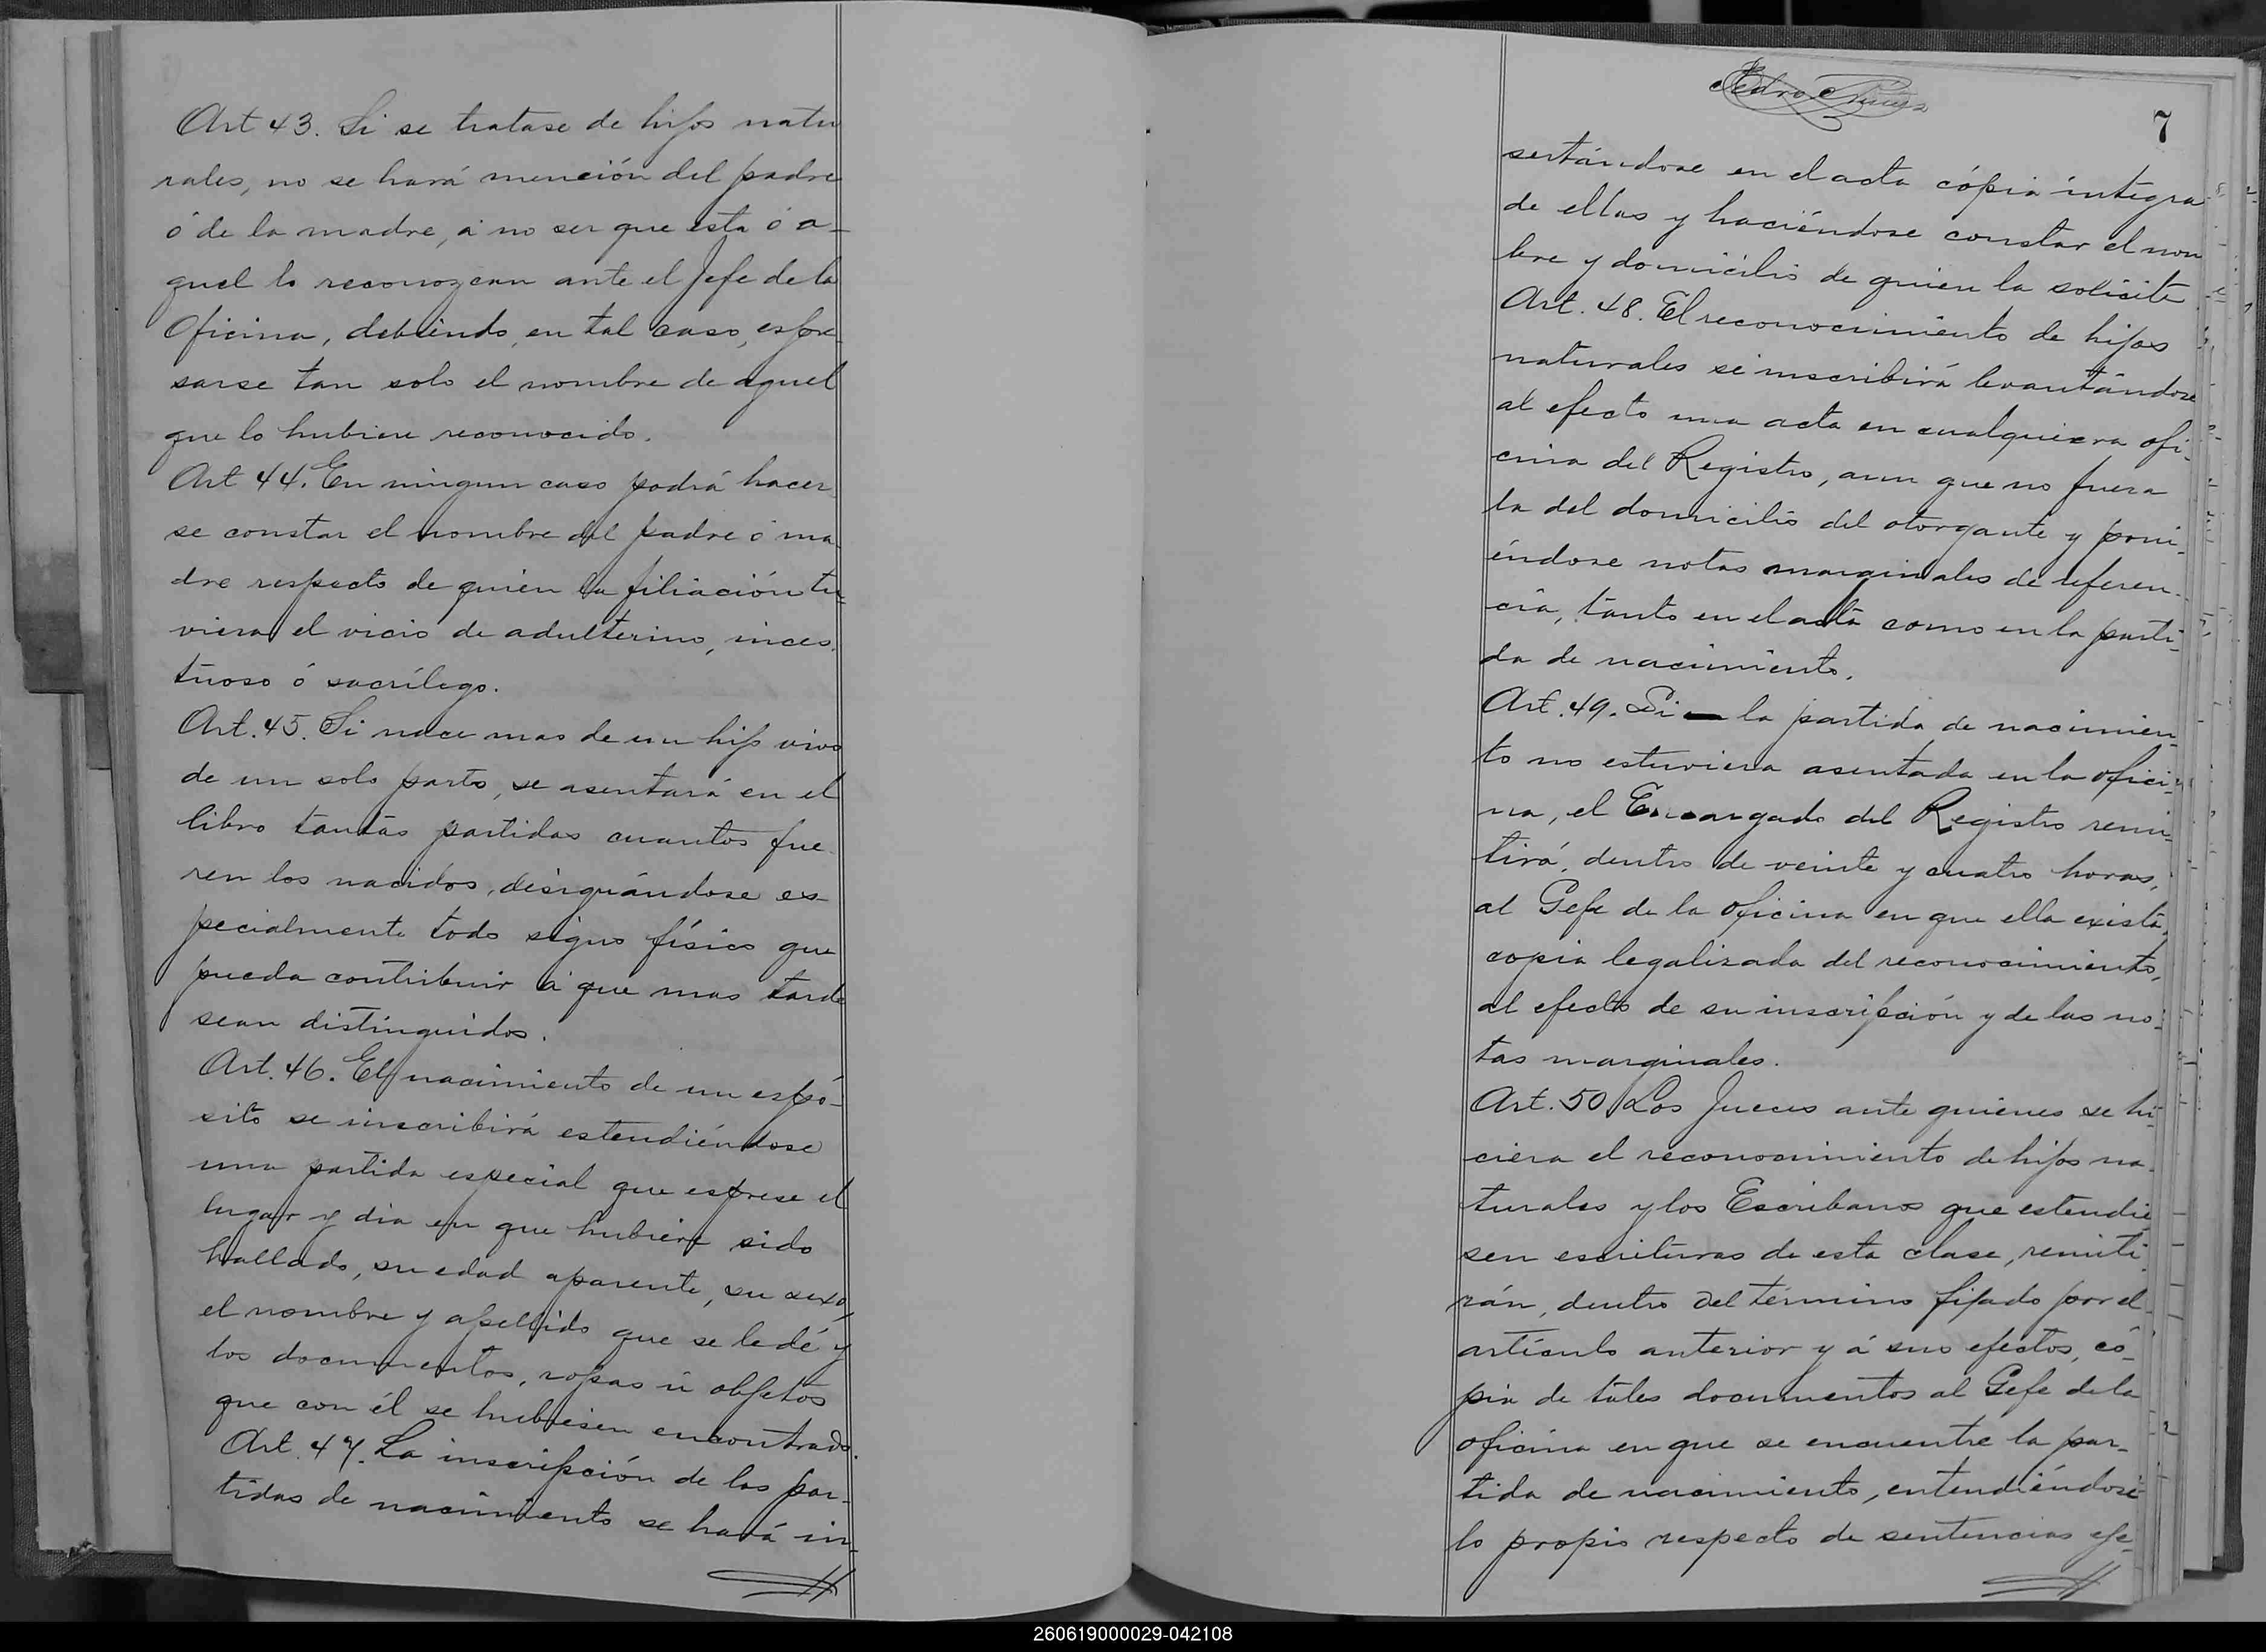 Art 43. Si se tratase de hijos natu
rales, no se hará mención del padre
ó de la madre, á no ser que esta ó a-
quel lo reconozcan ante el Jefe de la
Oficina, debiendo, en tal caso, espre-
sarse tan solo el nombre de aquel
que lo hubiere reconocido.
Art 44. En ningun caso podrá hacer
se constar el nombre del padre ó ma-
dre respecto de quien la filiación tu-
viera el vicio de adulterino, inces
tuoso ó sacrílego.
Art. 45. Si nace mas de un hijo vivo
de un solo parto, se asentará en el
libro tantas partidas cuantos fue
ren los nacidos, designándose es-
pecialmente todo signo físico que
pueda contribuir á que mas tarde
sean distinguidos.
Art. 46. El nacimiento de un espó-
sito se inscribirá estendiéndose
una partida especial que esprese el
lugar y dia en que hubiere sido
hallado, su edad aparente, su sexo,
el nombre y apellido que se le dé y
los documentos, ropas ú objetos
que con él se hubiesen encontrado.
Art. 47. La inscripción de las par-
tidas de nacimiento se hará in-
Pedro
7
sertándose en el acta cópia íntegra
de ellas y haciéndose constar el nom
bre y domicilio de quien la solicite
Art. 48. El reconocimiento de hijos
naturales se inscribirá levantándose
al efecto una acta en cualquiera ofi-
cina del Registro, aun que no fuera
la del domicilio del otorgante y poni-
éndose notas marginales de referen-
cia, tanto en el acta como en la parti-
da de nacimiento.
Art. 49. Si la partida de nacimien-
to no estuviera asentada en la ofici-
na, el Encargado del Registro remi-
tirá, dentro de veinte y cuatro horas,
al Gefe de la oficina en que ella exista,
copia legalizada del reconocimiento,
al efecto de su inscripción y de las no-
tas marginales.
Art. 50 Los Jueces ante quienes se hi-
ciera el reconocimiento de hijos na-
turales y los Escribanos que estendie
sen escrituras de esta clase, remiti-
rán, dentro del término fijado por el
artículo anterior y á sus efectos, có-
pia de tales documentos al Gefe de la
oficina en que se encuentre la par-
tida de nacimiento, entendiéndose
lo propio respecto de sentencias eje-
260619000029-042108